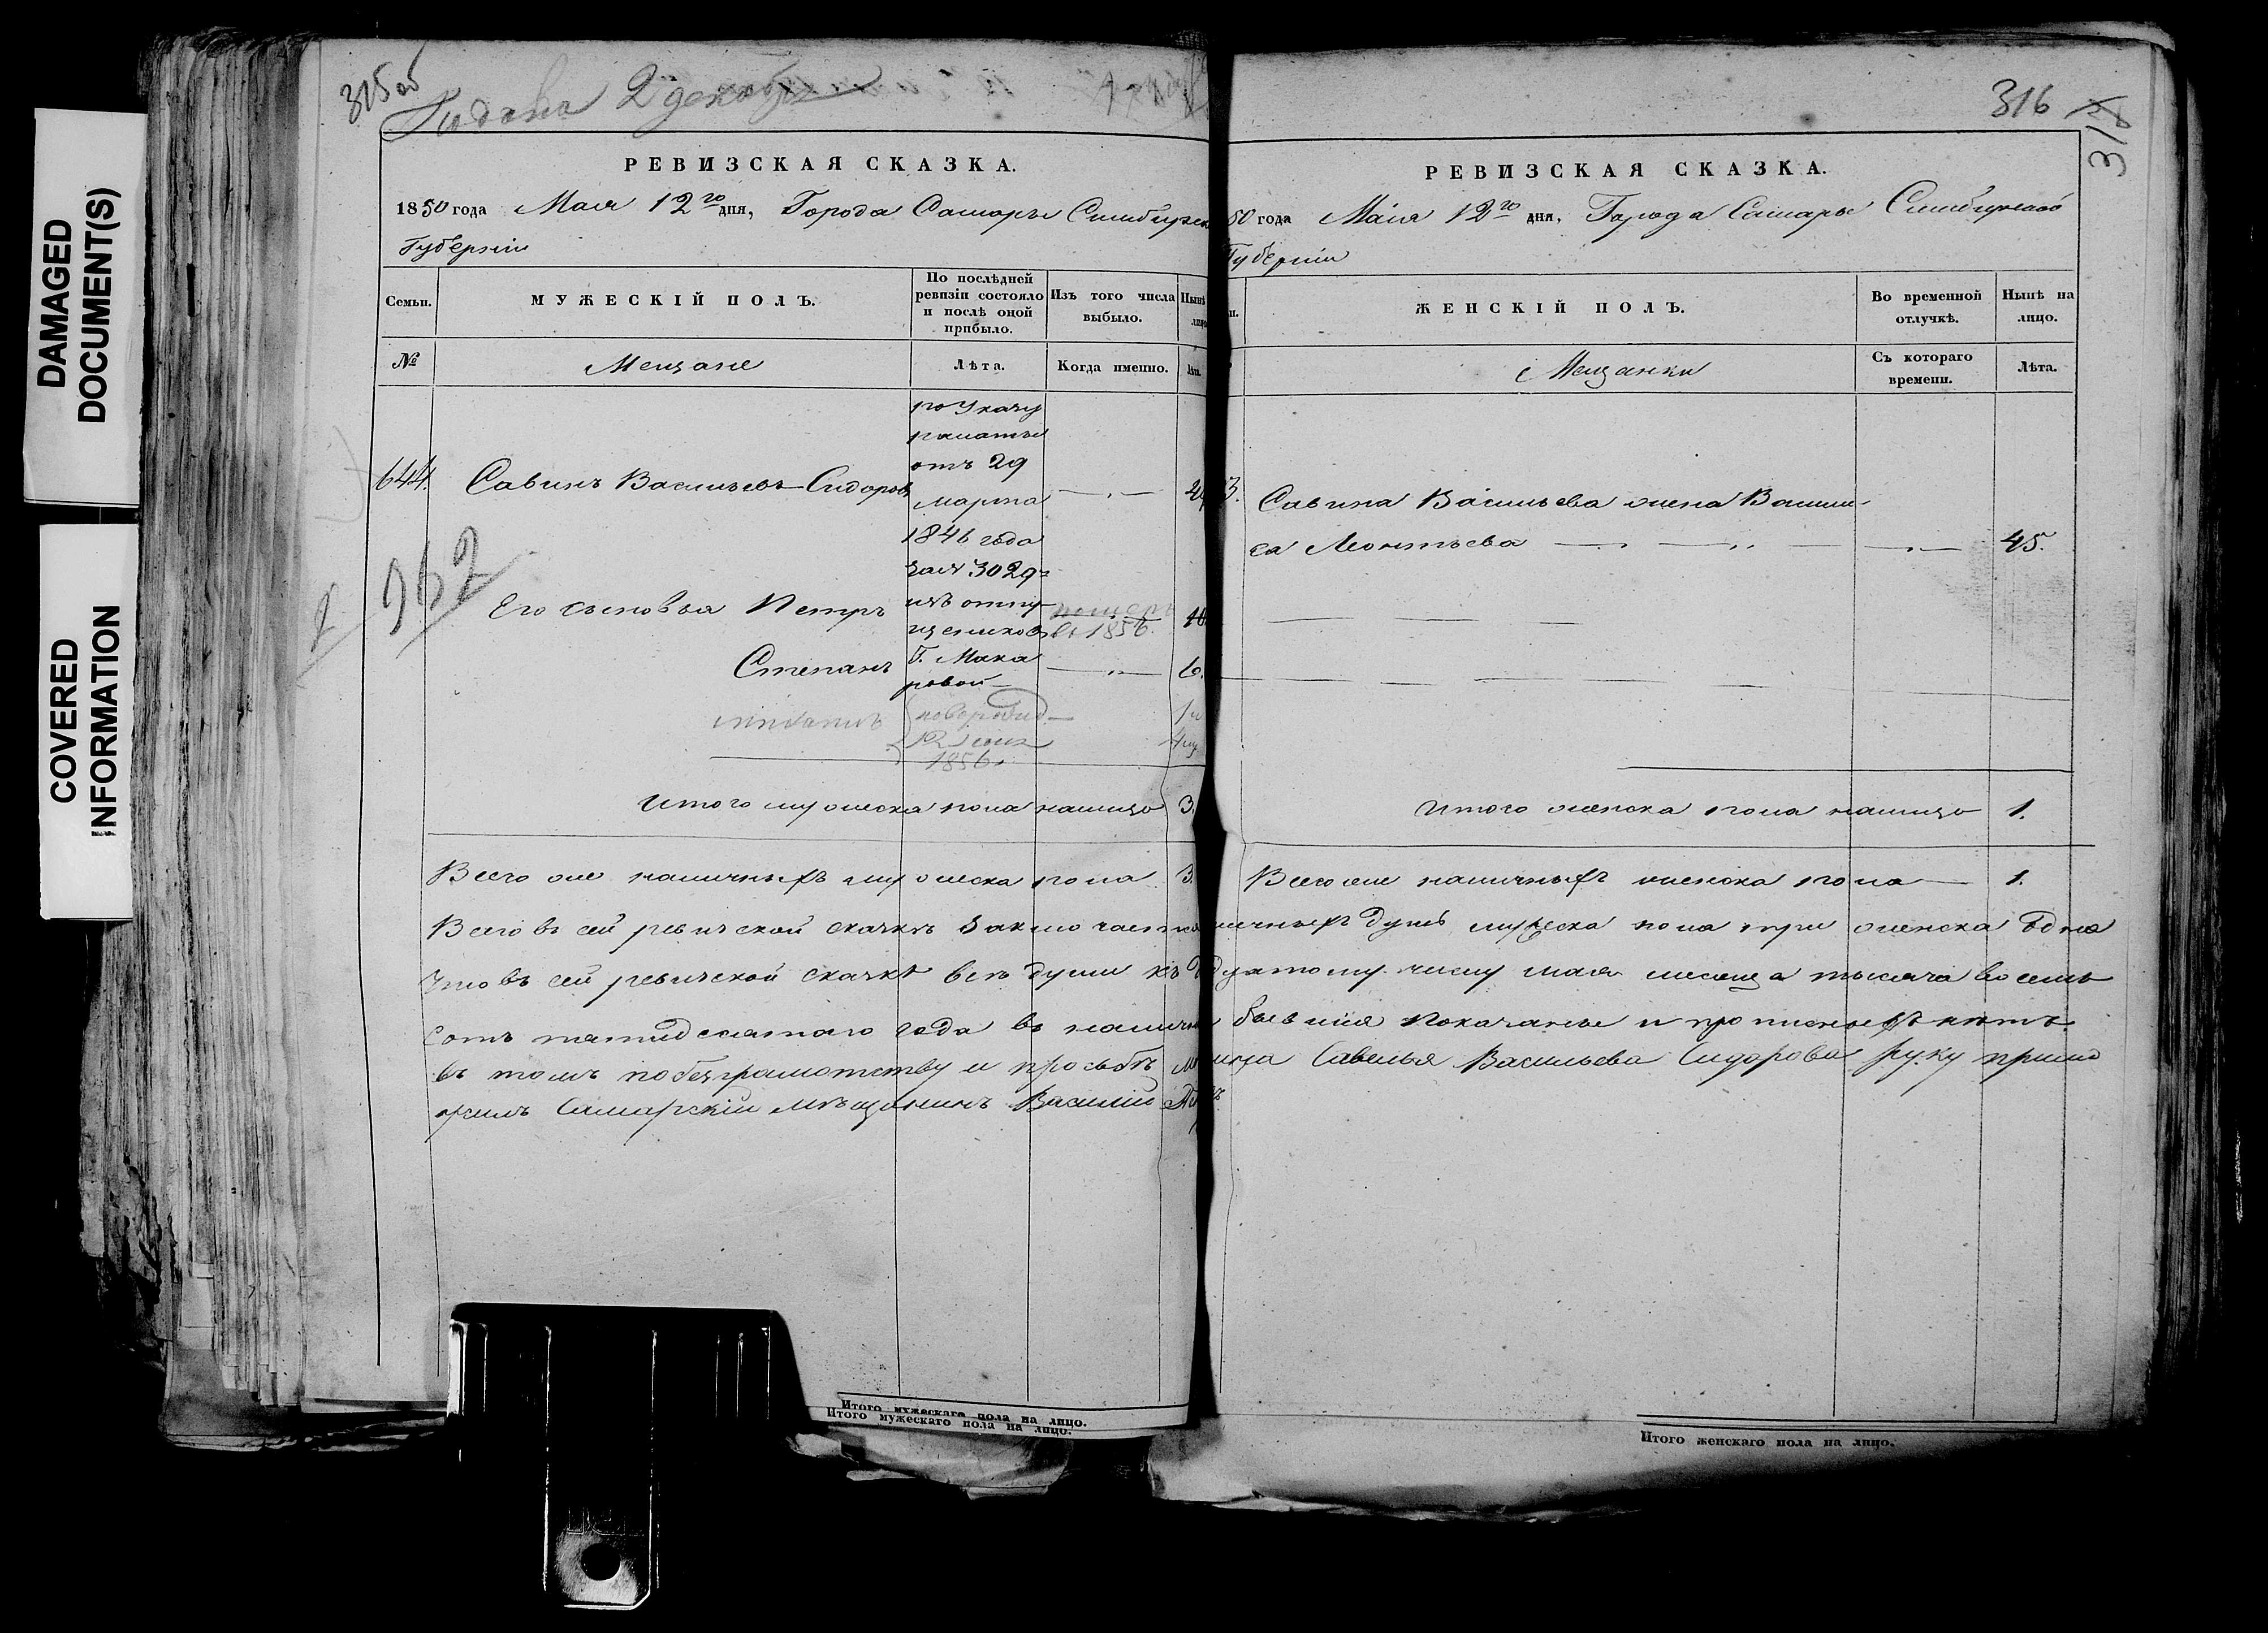 DAMAGED
DOCUMENT(S)
COVERED
INFORMATION
315 об
Подана 2 декабря
РЕВИЗСКАЯ СКАЗКА.
1850 года Мая 12го дня, Города Самары Симбирск
Губерніи
Семьи.
МУЖЕСКІЙ ПОЛЪ.
По послѣдней
ревизіи состояло
и послѣ оной
прибыло.
Изъ того числа
выбыло.
Нынѣ
лицо
№
Мещане
Лѣта.
Когда именно.
Лѣта.
по Указу
палаты
отъ 29
марта
1846 года
за № 3029
изъ отпу-
щениковъ
Г. Мака
ровой
644.
Савинъ Васильевъ Сидоровъ
962
Его сыновья Петръ
въ 1856.
Степанъ
6.
новорожд
12
1856.
Итого мужеска пола налицо 3.
Всего же наличныхъ мужеска пола 3.
Всего въ сей ревизской сказкѣ заключается
Что въ сей ревизской сказкѣ всѣ души къ
сотъ пятидесятаго года въ налич
въ томъ по безграмотству и прозьбѣ
жилъ Самарскій мѣщанинъ Василий
Итого мужескаго пола на лицо.
Итого мужескаго пола на лицо.
316
318
РЕВИЗСКАЯ СКАЗКА.
50 года Маія 12го дня, Города Самары Симбирской
Губерніи
ЖЕНСКІЙ ПОЛЪ.
Во временной
отлучкѣ.
Нынѣ на
лицо.
Мещанки
Съ котораго
времени.
Лѣта.
Савина Васильева жена Васили-
са Леонтьева
45.
Итого женска пола налицо 1.
Всего же наличныхъ женска пола 1.
личныхъ душъ мужеска пола три женска одна
дцатому числу мая месяца тысяча восемь
бывшія показаны и прописныхъ нѣтъ
Савелья Васильева Сидорова руку прило
Итого женскаго пола на лицо.